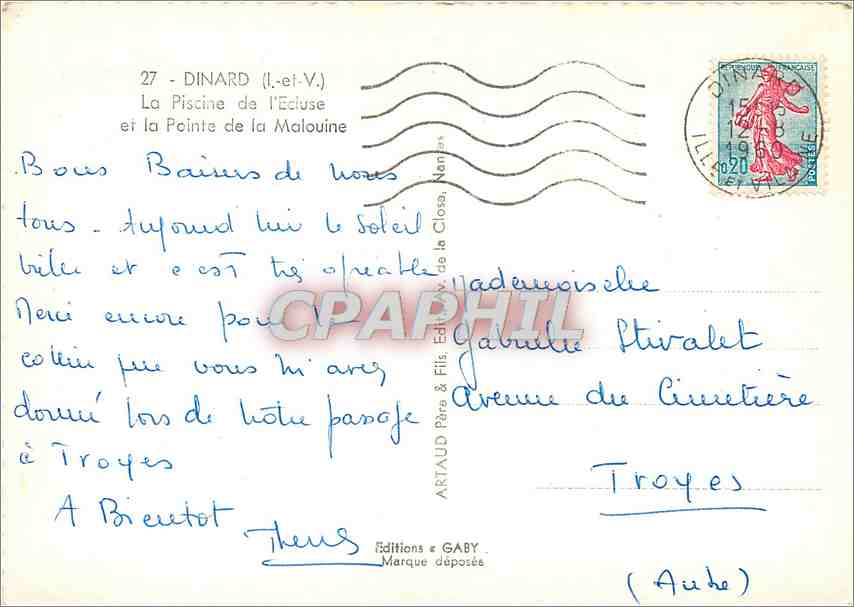 27 - DINARD (I.-et-V.)
La Piscine de l'Ecluse
et la Pointe de la Malouine
Bons Baisers de nous
tous - Aujourd'hui le Soleil
brille et c'est très agréable
Merci encore pour le
que vous m'avez
donné lors de notre passage
à Troyes
A Bientot
REPUBLIQUE FRANÇAISE
0,20
POSTES
DINARD
12-8
1960
ILLE ET VILAINE
Mademoiselle
Gabrielle Stivalet
Avenue du Cimetière
Troyes
(Aube)
ARTAUD Père & Fils, Edit., Av. de la Close, Nantes
Editions « GABY
Marque déposée
CPAPHIL